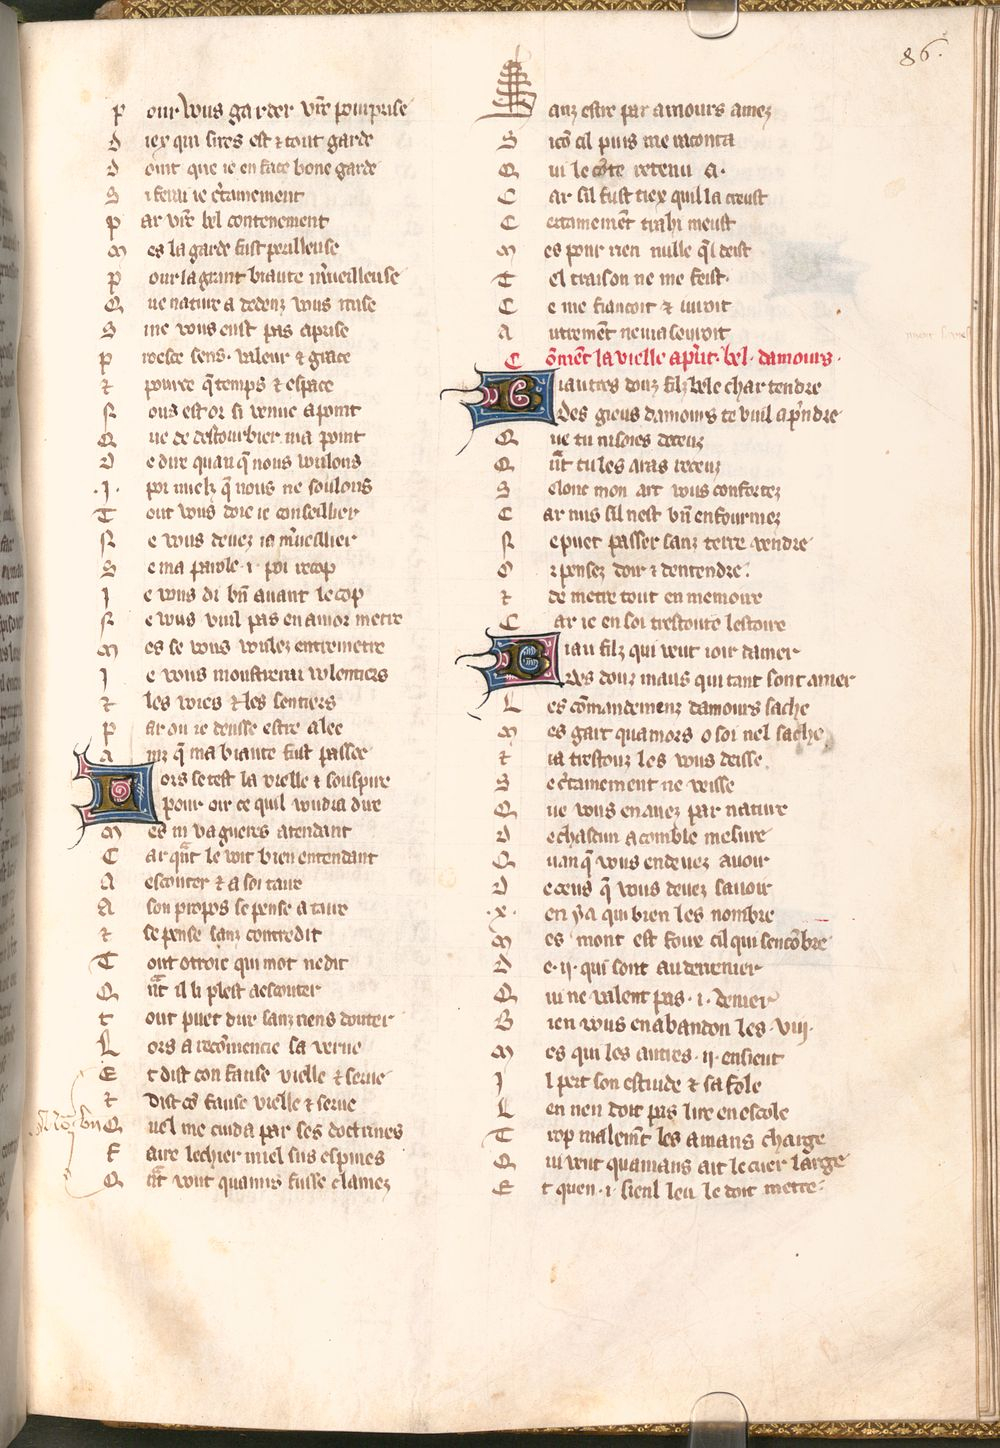 86.
P our vous garder vr̃e pourprise
D iex qui sires est ⁊ tout garde
D oint que ie en face bone garde
S i ferai ie c̃tainement
P ar vr̃e bel contenement
M es la garde fust perilleuse
P our la grant biaute m̃ueilleuse
Q ue nature a dedenz vous mise
S ine vous eust pas aprise
P roesce sens · valeur ⁊ grace
⁊ pource q̃ temps ⁊ espace
N ous est or si venue a point
Q ue de destourbier na point
D e dire quan q̃ nous voulons
·I· poi mielz q̃ nous ne soulons
T out vous doie ie conseillier
N e vous deuez ia m̃ueillier
S e ma parole ·i· poi recop
I e vous di bñ auant le cop
N e vous vuil pas en amor metre
M es se vous voulez entremetre
I e vous moustrerai volentiers
⁊ les voies ⁊ les sentiers
P ar ou ie deusse estre alee
A inz q̃ ma biaute fust passee
L ors se test la vielle ⁊ souspire
pour oir ce quil voudra dire
M es ni va gueres atendant
C ar q̃nt le voit bien entendant
A escouter ⁊ a soi taire
A son propos se pense a traire
⁊ se pense sanz contredit
T out otroie qui mot ne dit
Q ñt il li plest a escouter
T out puet dire sanz riens douter
L ors a recõmencie sa verue
E t dist con fause vielle ⁊ serue
⁊ dist cõ fause vielle ⁊ serue
Q uel me cuida par ses doctrines
F aire lechier miel sus espines
Q ñt vout quamis fusse clamez
S anz estre par amours amez
S icõ cil puis me raconta
Q ui le cõte retenu a ·
C ar sil fust tiex quil la creust
C ertainemẽt trahi meust
M es pour rien nulle q̃l deist
T el traison ne me feist ·
C e me fiancoit ⁊ iuroit
A utremẽt ne masseuroit
C õmẽt la vielle ap̃nt · bel · damours ·
B iautres douz filz bele char tendre
Des gieus damours te vuil ap̃ndre
Q ue tu ni soies deceuz
Q ñt tu les aras receuz
S elonc mon art vous confortez
C ar nus sil nest bñ enfourmez
N e puet passer sanz terre vendre
O r pensez doir ⁊ dentendre ·
⁊ de metre tout en memoire
C ar ie en soi trestoute lestoire
B iau filz qui veut ioir damer
Des douz maus qui tant sont amer
L es cõmandemenz damours sache
M es gart quamors o soi nel sache
⁊ ia trestouz les vous deisse
S e c̃tainement ne veisse
Q ue vous en auez par nature
D e chascun a comble mesure
Q uan q̃ vous en deuez auoir
D e ceus q̃ vous deuez sauoir
·x· en y a qui bien les nombre
M es mont est foux cil qui sencõbre
D e ·ii· qui sont au derrenier
Q ui ne valent pas ·i· denier
B ien vous en abandon les ·viii·
M es qui les autres ·ii· ensieut
I l pert son estuide ⁊ safole
L en nen doit pas lire en escole
T rop malemẽt les amans charge
Q ui veut quamans ait le cuer large
E t quen ·i· sieul leu le doit metre ·